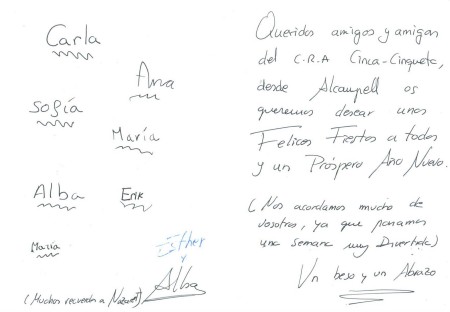 Carla
Ana
Sofía
María
Alba Erik
María
Esther
y
Alba
(Muchos recuerdos a Nazaret)
Queridos amigos y amigas
del C.R.A Cinca-Cinqueta,
desde Alcampell os
queremos desear unas
Felices Fiestas a todos
y un Próspero Año Nuevo.
(Nos acordamos mucho de
vosotros, ya que pasamos
una semana muy Divertida)
Un beso y un Abrazo